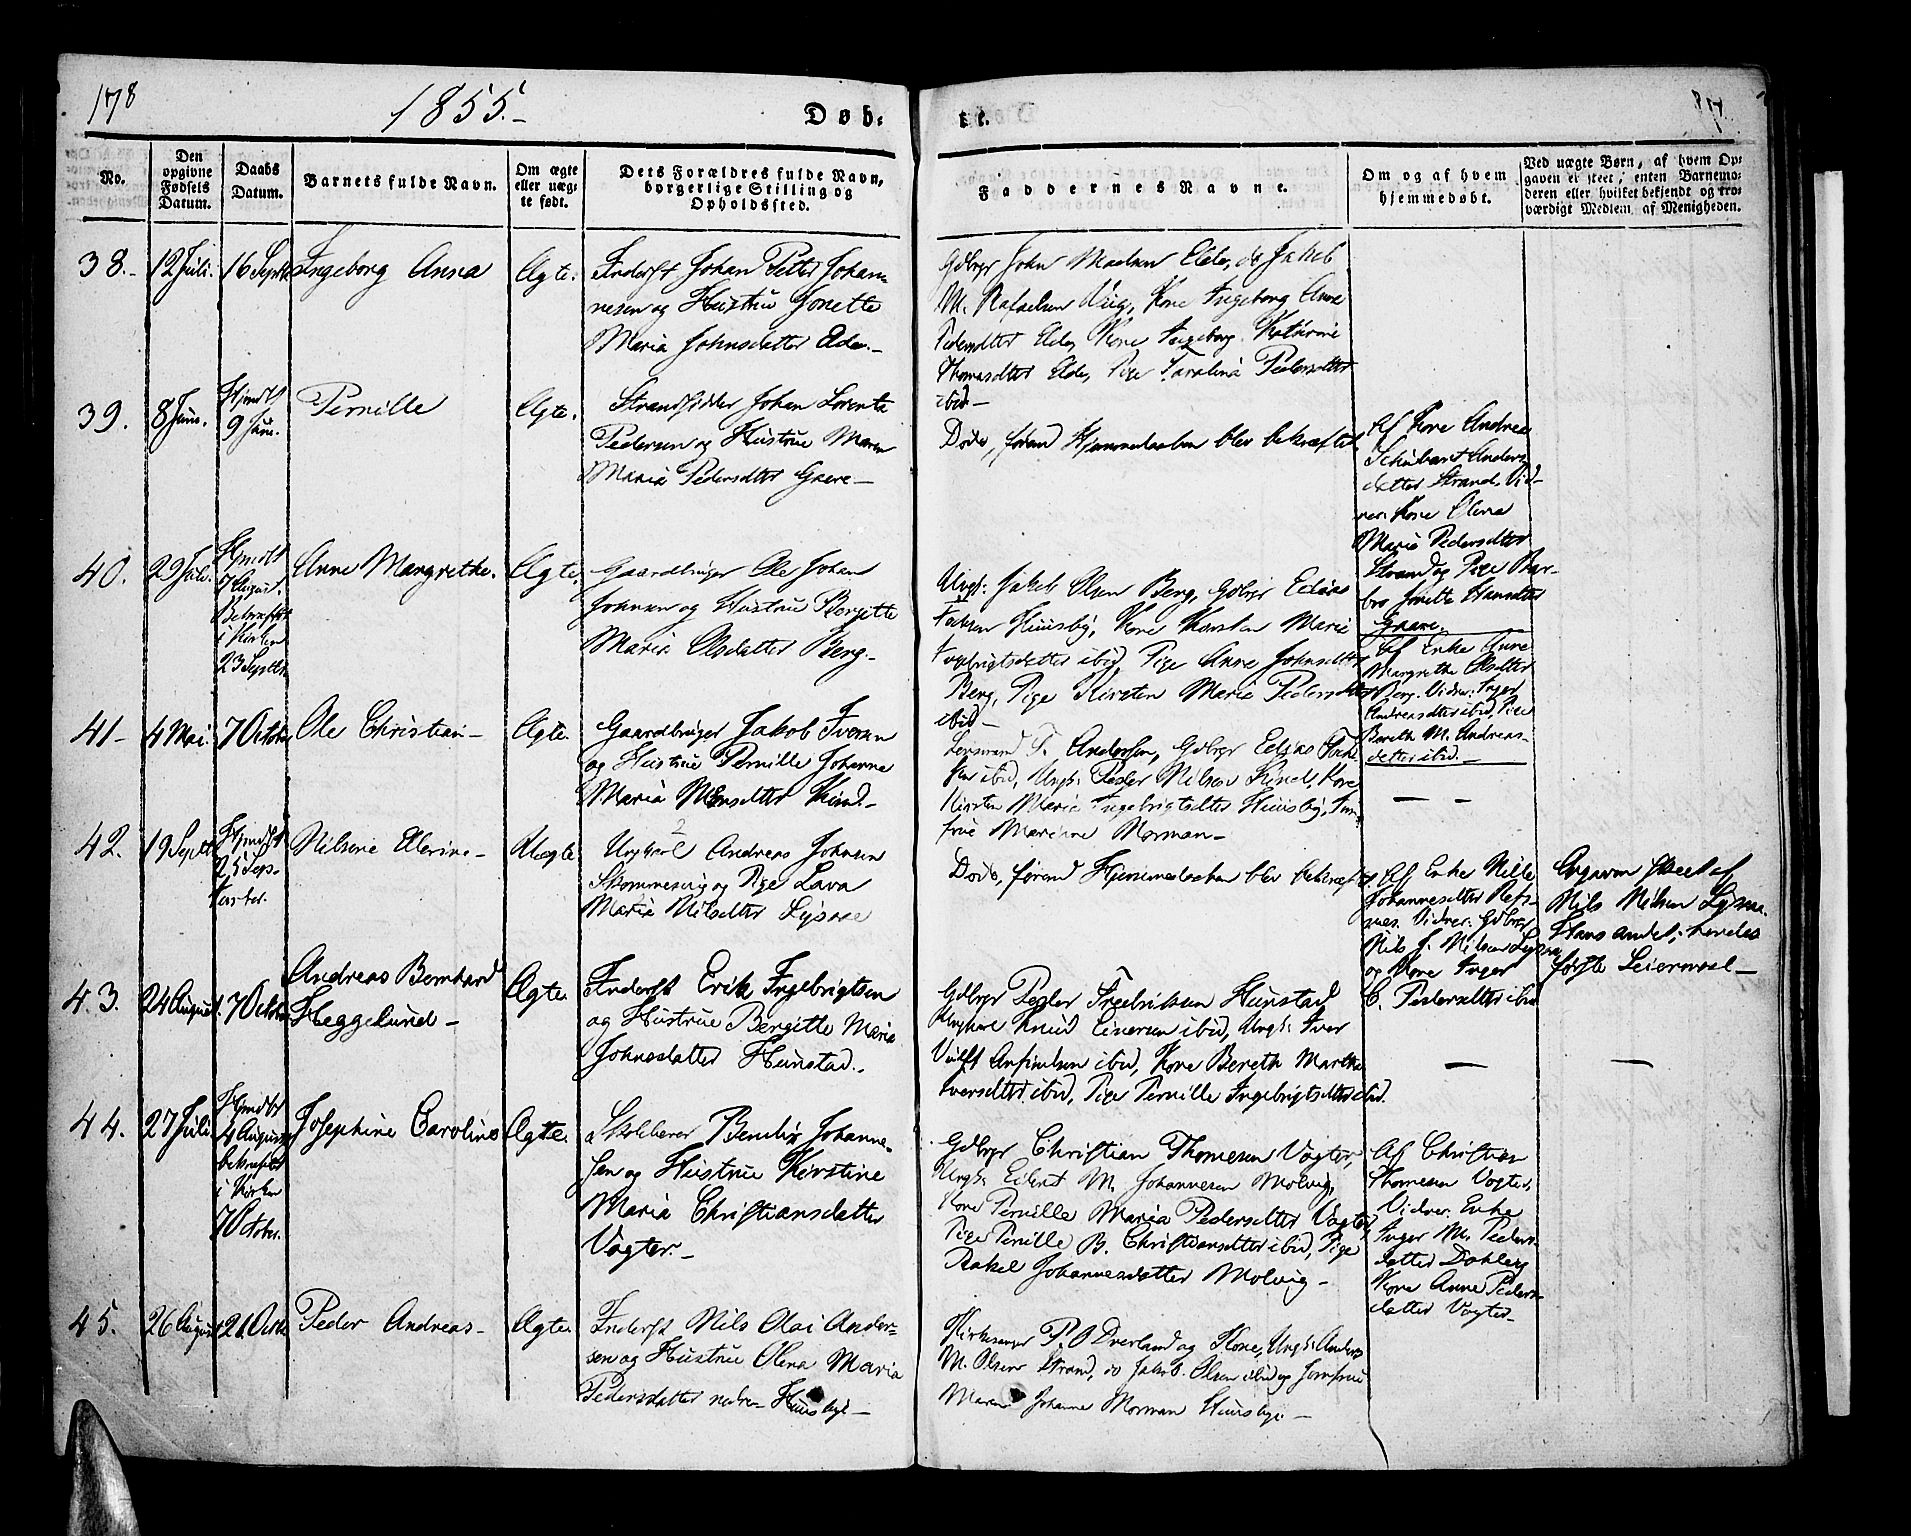 178
1855.-
Døb-
te.
No.
Den opgivne Fødsels Datum.
Daabs Datum.
Barnets fulde Navn.
Om ægte eller uægte født.
Dets Forældres fulde Navn, borgerlige Stilling og Opholdssted.
Faddernes Navne.
Om og af hvem hjemmedøbt.
Ved uægte Børn, af hvem Opgaven er skeet; enten Barnemoderen eller hvilket bekjendt og troværdigt Medlem af Menigheden.
38.-
12 Juli.
16 Septb
Ingeborg Anna
Ægte.
Inderst Johan Petter Johan-
nesen og Hustrue Jonette
Maria Johnsdatter Elde.-
Gdbrgr John Madsen Elde, do Jakob
M. Rafaelsen Viig, Kone Ingeborg Anne
Pedersdtter Elde, Kone Ingeborg Kathrine
Thomasdtter Elde, Pige Paralina Pedersdtter
ibid-
39.
8 Juni.
Hjmdbt
9 Juni.
Pernille
Ægte.
Strandsidder Johan Lorents
Pedersen og Hustrue Maren
Maria Pedersdtter Gaare-
Døde, førend Hjemmedaaben blev bekræftet.
Af Kone Andrea
Schubart Anders-
datter Strand, Vid-
ner: Kone Olina
Maria Pedersdtter
Strand og Pige Bar-
bro Jonette Hansdtter
Gaare.
40.
29 Juli.
Hjmdbt
7 August.
Bekræftet
i Kirken
23 Septbr.
Anne Margrethe.
Ægte.
Gaardbruger Ole Johan
Johnsen og Hustrue Bergitte
Maria Olsdatter Berg.-
Ungk: Jakob Olsen Berg, Gdbrgr Edias
Falksen Huusby, Kone Kirsten Marie
Ingebrigtsdatter ibid, Pige Anne Johnsdtter
Berg, Pige Kirsten Maria Pedersdtter
ibid-
Af Enke Anne
Margrethe Olsdtter
Berg. Vidner: Inger
Andreasdtter ibid, Pige
Bereth M. Andreas-
datter ibid.-
41-
4 Mai.
7 Octbr
Ole Christian-
Ægte.
Gaardbruger Jakob Iversen
og Hustrue Pernille Johanne
Maria Monsdtter Kind-
Lensmand T. Andersen, Gdbrgr Edias Falk-
sen ibid, Ungk: Peder Nilsen Kind, Kone
Kirsten Maria Ingebrigtsdtter Huusby, Jom-
frue Marianne Norman-
— —
42.
19 Septb
Hjmdbt
25 Sep-
tember.
Nilsine Elerine-
Uægte
Ungkarl Andreas Johnsen
Skommesvig og Pige Lava
Maria Nilsdtter Lysvae
Døde, førend Hjemmedaaben blev bekræftet
Af Enke Nille
Johannesdtter Refs-
næs. Vidner: Gdbrgr
Nils J. Nilsen Lysvae
og Kone Inger
C. Pedersdtter ibid
Angivven skeet af
Nils Nilsen Lysvae.
Hans andet; hendes
første Leiermaal-
43.
24 August.
7 Octbr
Andreas Bernhard
Heggelund-
Ægte.
Inderst Erik Ingebrigtsen
og Hustrue Bergitte Maria
Johnsdatter Hunstad.-
Gdbrgr Peder Fredriksen Hunstad
Ungkarl Knud Einersen ibid, Ungk: Iver
Vulff Anfindsen ibid, Kone Bereth Marthe
Iversdtter ibid, Pige Pernille Ingebrigtsdtter ibid.
—
—
44.
27 Juli.
Hjmdbt
4 August
bekræftet
i Kirken
7 October.
Josephine Caroline
Ægte.
Skolelærer Bendix Johanne-
sen og Hustrue Kirstine
Maria Christiansdatter
Vogter.-
Gdbrgr Christian Thomesen Vogter,
Ungk: Eilert M. Johannesen Molvig
Kone Pernille Maria Pedersdtter Vogter,
Pige Pernille B. Christiansdtter ibid, Pige
Rakel Johannesdatter Molvig-
Af Christian
Thomesen Vogter,
Vidner: Enke
Inger M. Peders-
datter Dahlberg
Kone Anne Peders-
datter Vogter-
45.
26 August
21 Octbr
Peder Andreas-
Ægte.
Inderst Nils Olai Ander-
sen og Hustrue Olina Maria
Pedersdatter nedre Huusbye-
Kirkesanger P. O Overland og Kone, Ungk: Anders
M. Olsen Strand, do Jakob Olsen ibid og Jomfrue
Maren Johanne Norman Huusbye.-